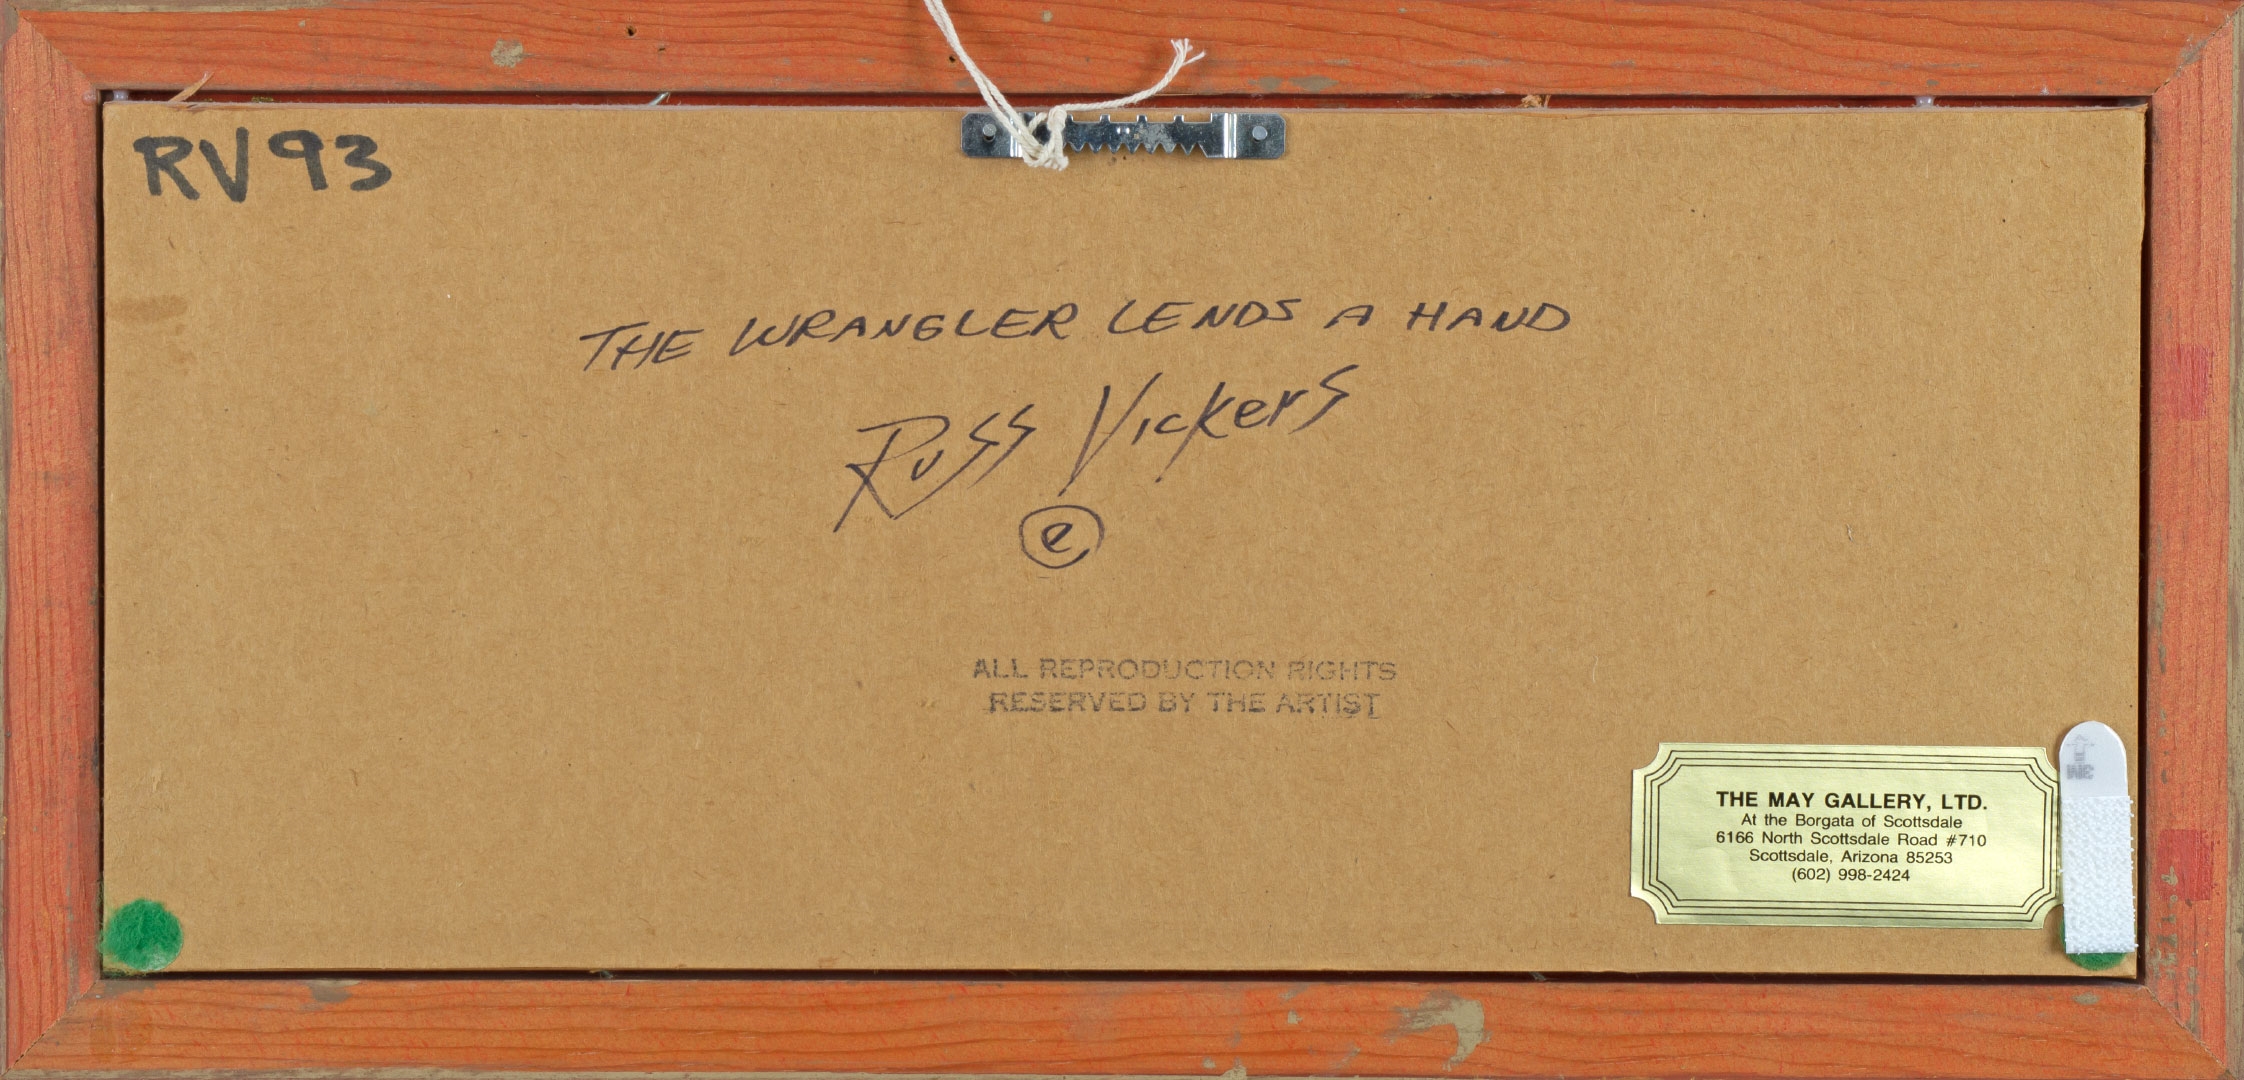 RV93
THE WRANGLER LENDS A HAND
Russ Vickers
©
ALL REPRODUCTION RIGHTS
RESERVED BY THE ARTIST
THE MAY GALLERY, LTD.
At the Borgata of Scottsdale
6166 North Scottsdale Road #710
Scottsdale, Arizona 85253
(602) 998-2424
3M